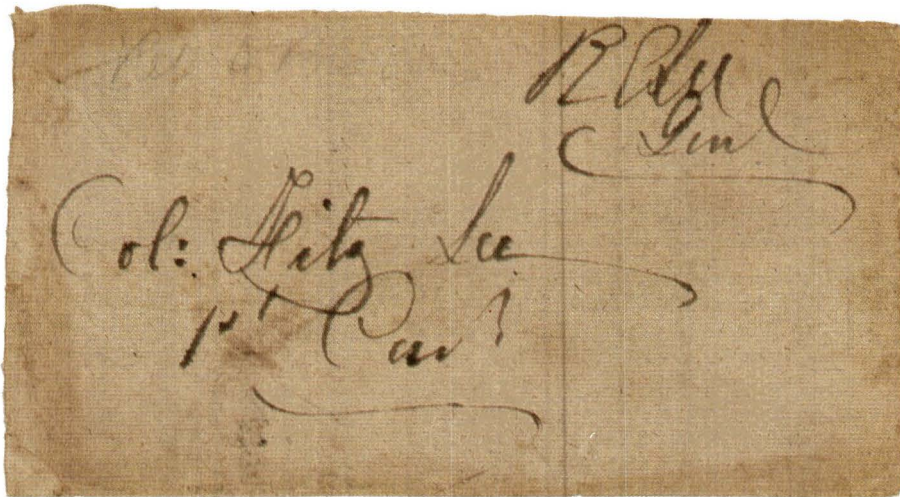 R E Lee
Genl
Col: Fitz Lee
1st Cavy